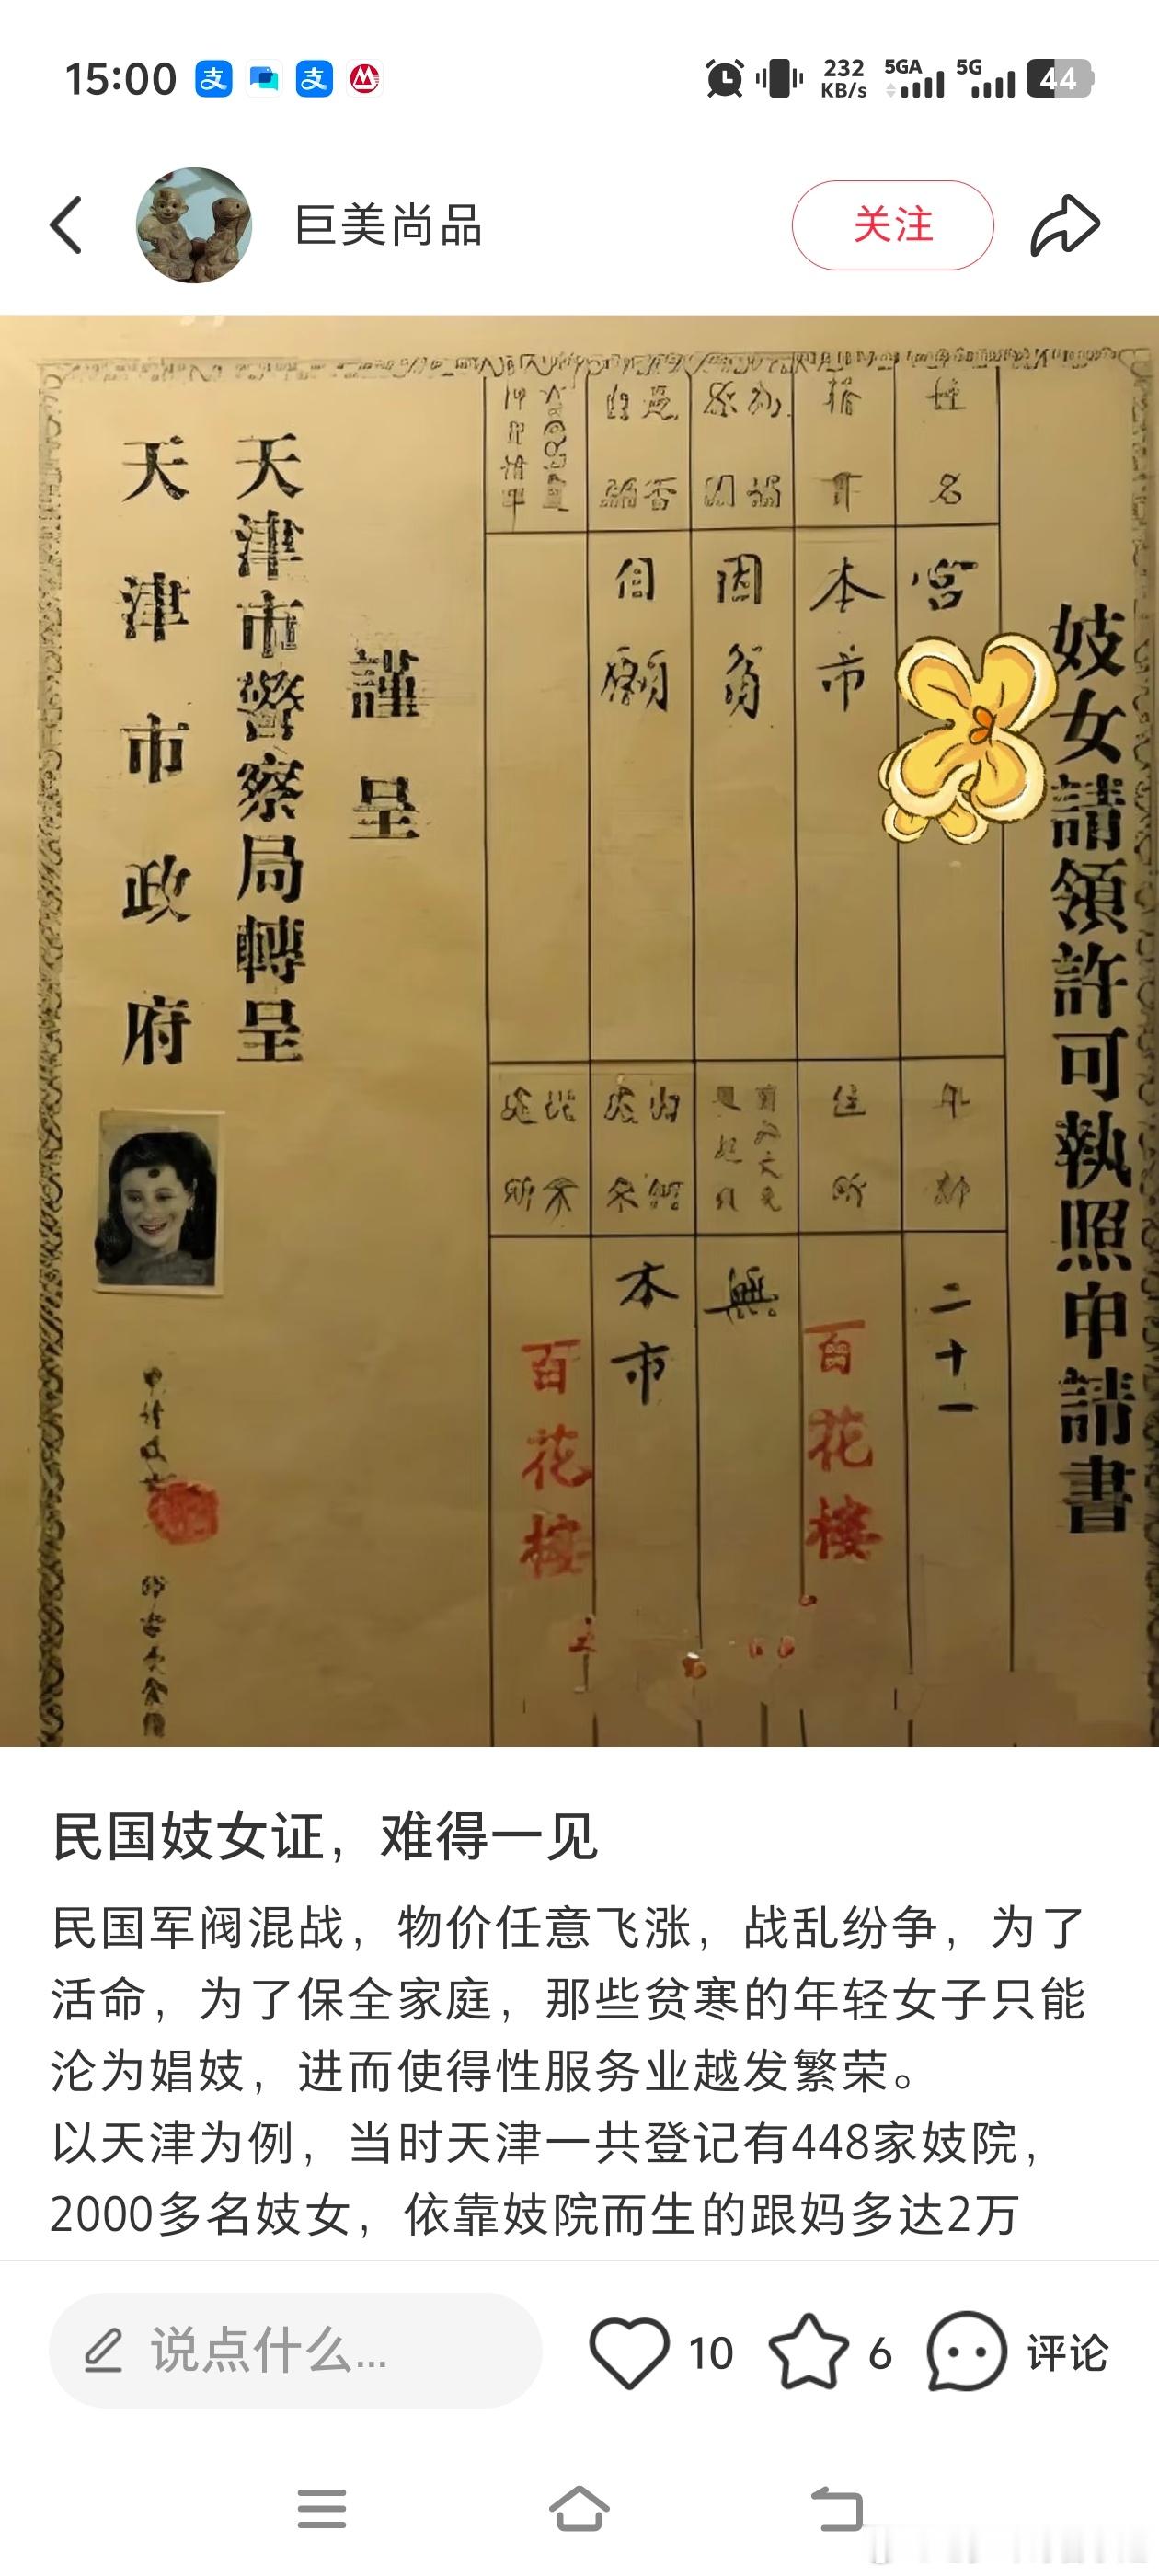 15:00
232
KB/s
5GA
5G
44
巨美尚品
关注
妓女請領許可執照申請書
姓名
宮
年齡
二十一
籍
本市
住所
百花樓
因貧
無
自願
本市
百花樓
謹呈
天津市警察局轉呈
天津市政府
民国妓女证，难得一见
民国军阀混战，物价任意飞涨，战乱纷争，为了
活命，为了保全家庭，那些贫寒的年轻女子只能
沦为娼妓，进而使得性服务业越发繁荣。
以天津为例，当时天津一共登记有448家妓院，
2000多名妓女，依靠妓院而生的跟妈多达2万
说点什么...
10
6
评论